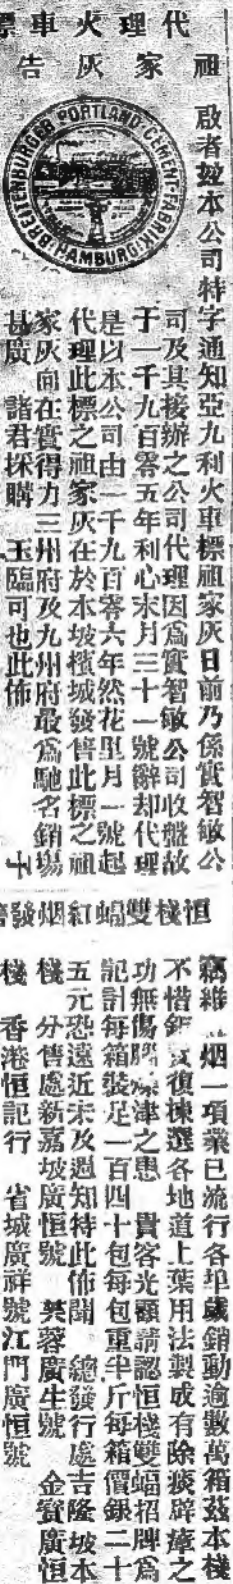 代理火車標
祖家灰告
BREITENBURGER PORTLAND-CEMENT-FABRIK HAMBURG
啟者玆本公司特字通知亞九利火車標祖家灰日前乃係實智敏公
司及其接辦之公司代理因爲實智敏公司收盤故
于一千九百零五年利心末月三十一號辭却代理
是以本公司由一千九百零六年然花里月一號起
代理此標之祖家灰在於本坡檳城發售此標之祖
家灰向在實得力三州府及九州府最爲馳名銷塲
甚廣 諸君採購 玉臨可也此佈
恒棧雙蝠紅烟發
竊維 烟一項業已流行各埠歲銷動逾數萬箱茲本棧
不惜 復揀選各地道上葉用法製成有除痰辟瘴之
功無傷腦 津之患 貴客光顧請認恒棧雙蝠招牌爲
記計每箱裝足一百四十包每包重半斤每箱價銀二十
五元恐遠近未及週知特此佈聞 總發行處吉隆坡本
棧 分售處新嘉坡廣恒號 芙蓉廣生號 金寶廣恒
棧 香港恒記行 省城廣祥號江門廣恒號